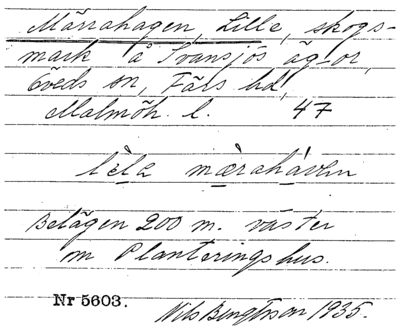 Märrahagen, Lille, skogs-
mark å Svansjös ägor,
Öveds sn, Färs hd,
Malmöh. l. 47
lìla mæ̀rahàvən
Belägen 200 m. väster
om Planteringshus.
Nr 5603.
Nils Bengtsson 1935.